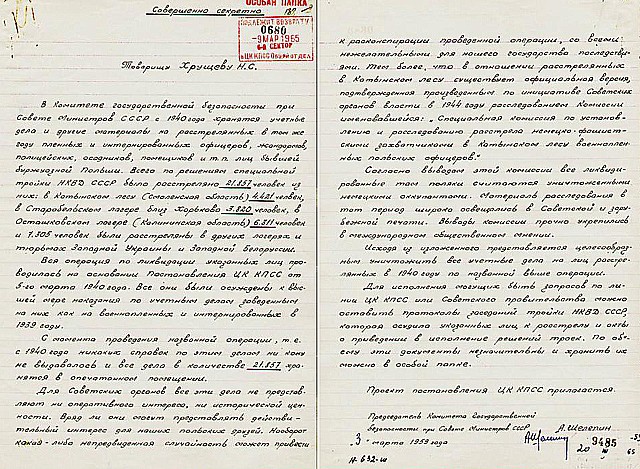 ОСОБАЯ ПАПКА
Совершенно секретно
ПОДЛЕЖИТ ВОЗВРАТУ
0680
-9 МАР 1965
6-й СЕКТОР
в ЦК КПСС
Товарищу Хрущеву Н.С.
В Комитете государственной безопасности при
Совете Министров СССР с 1940 года хранятся учетные
дела и другие материалы на расстрелянных в том же
году пленных и интернированных офицеров, жандармов,
полицейских, осадников, помещиков и т.п. лиц бывшей
буржуазной Польши. Всего по решениям специальной
тройки НКВД СССР было расстреляно 21.857 человек, из
них: в Катынском лесу (Смоленская область) 4.421 человек,
в Старобельском лагере близ Харькова 3.820 человек, в
Осташковском лагере (Калининская область) 6.311 человек
и 7.305 человек были расстреляны в других лагерях и
тюрьмах Западной Украины и Западной Белоруссии.
Вся операция по ликвидации указанных лиц про-
водилась на основании Постановления ЦК КПСС от
5-го марта 1940 года. Все они были осуждены к выс-
шей мере наказания по учетным делам, заведенным
на них как на военнопленных и интернированных в
1939 году.
С момента проведения названной операции, т.е.
с 1940 года никаких справок по этим делам ни кому
не выдавалось и все дела в количестве 21.857 хра-
нятся в опечатанном помещении.
Для Советских органов все эти дела не представ-
ляют ни оперативного интереса, ни исторической цен-
ности. Вряд ли они могут представлять действи-
тельный интерес для наших польских друзей. Наоборот
какая-либо непредвиденная случайность может привести
к расконспирации проведенной операции, со всеми
нежелательными для нашего государства последстви-
ями. Тем более, что в отношении расстрелянных
в Катынском лесу существует официальная версия,
подтвержденная произведенным по инициативе Советских
органов власти в 1944 году расследованием Комиссии
именовавшейся: „Специальная комиссия по установ-
лению и расследованию расстрела немецко-фашист-
скими захватчиками в Катынском лесу военноплен-
ных польских офицеров."
Согласно выводам этой комиссии все ликвиди-
рованные там поляки считаются уничтоженными
немецкими оккупантами. Материалы расследования в
тот период широко освещались в Советской и зару-
бежной печати. Выводы комиссии прочно укрепились
в международном общественном мнении.
Исходя из изложенного представляется целесообраз-
ным уничтожить все учетные дела на лиц расстре-
лянных в 1940 году по названной выше операции.
Для исполнения могущих быть запросов по ли-
нии ЦК КПСС или Советского правительства можно
оставить протоколы заседаний тройки НКВД СССР,
которая осудила указанных лиц к расстрелу и акты
о приведении в исполнение решений троек. По объ-
ему эти документы незначительны и хранить их
можно в особой папке.
Проект постановления ЦК КПСС прилагается.
Председатель Комитета Государственной
безопасности при Совете Министров СССР
А.Шелепин
„3" марта 1959 года
Н-632-ш
9485
20
65